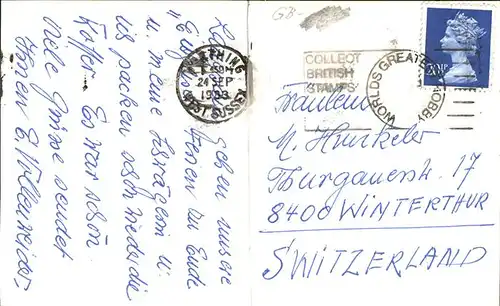 Leider gehen unsere
Ferien zu Ende
u. meine Jsrägerin u.
ich packen schon wieder die
Koffer. Es war schön.
Viele Grüsse sendet
Ihnen
WORTHING
24 SEP
1983
WEST SUSSEX
GB-
COLLECT
BRITISH
STAMPS
WORLDS GREATEST HOBBY
Fräulein
M. Hunkeler
Thurgauerstr. 17
8400 WINTERTHUR
SWITZERLAND